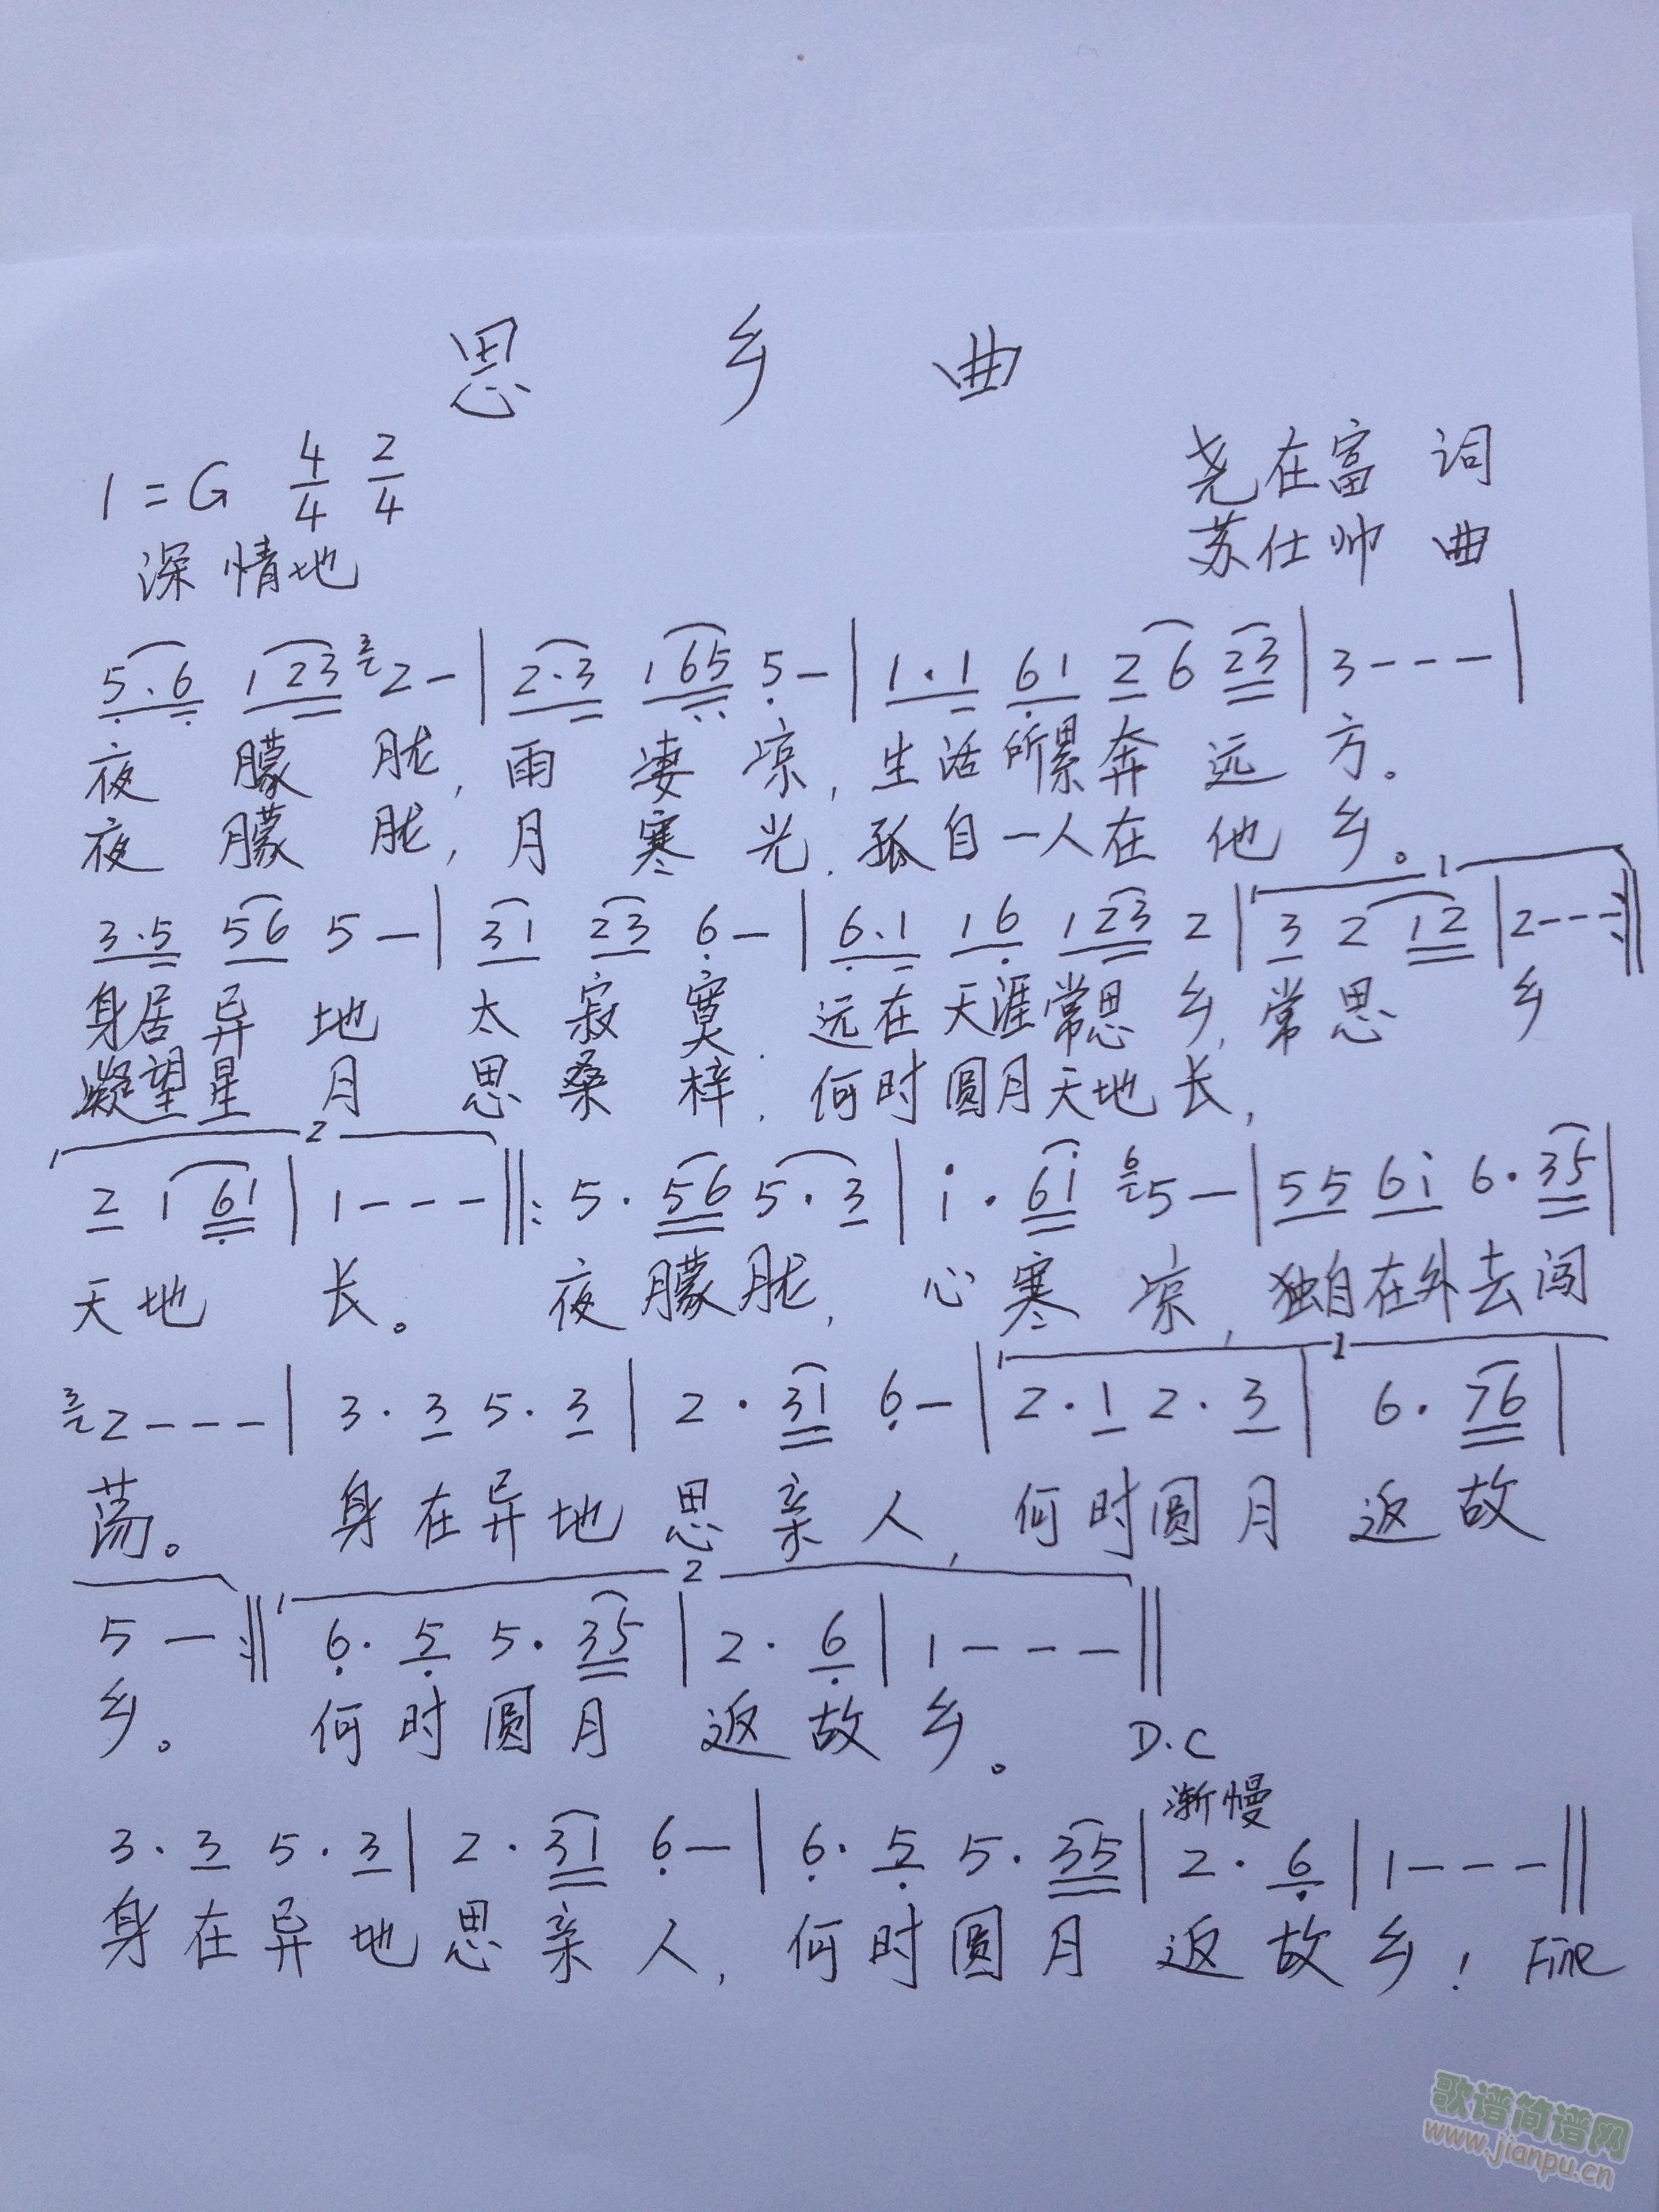 思 乡 曲
1=G 4/4 2/4
尧在富 词
深情地
苏仕帅 曲
5·6 123 3 2 - | 2·3 165 5 - | 1·1 61 2 6 23 | 3 - - - |
夜 朦 胧, 雨 凄 凉, 生活所累奔 远 方。
夜 朦 胧, 月 寒 光, 孤自一人在 他 乡。
1
3·5 56 5 - | 31 23 6 - | 6·1 16 123 2 | 3 2 12 | 2 - - - :‖
身居异 地 太 寂 寞, 远在天涯常思 乡, 常思 乡
凝望星 月 思 桑 梓, 何时圆月天地 长,
2
2 1 61 | 1 - - - ‖: 5·56 5·3 | i·6i 6 5 - | 55 6i 6·35 |
天地 长。 夜 朦胧, 心 寒 凉, 独自在外去闯
1
3 2 - - - | 3·3 5·3 | 2·31 6 - | 2·1 2·3 | 6·76 |
荡。 身在异地 思 亲 人, 何时圆月 返故
2
5 - :‖ 6·5 5·35 | 2·6 | 1 - - - ‖
乡。 何时圆月 返故乡。 D.C
渐慢
3·3 5·3 | 2·31 6 - | 6·5 5·35 | 2·6 | 1 - - - ‖
身在异地思亲人, 何时圆月 返故乡! Fine
歌谱简谱网
www.jianpu.cn